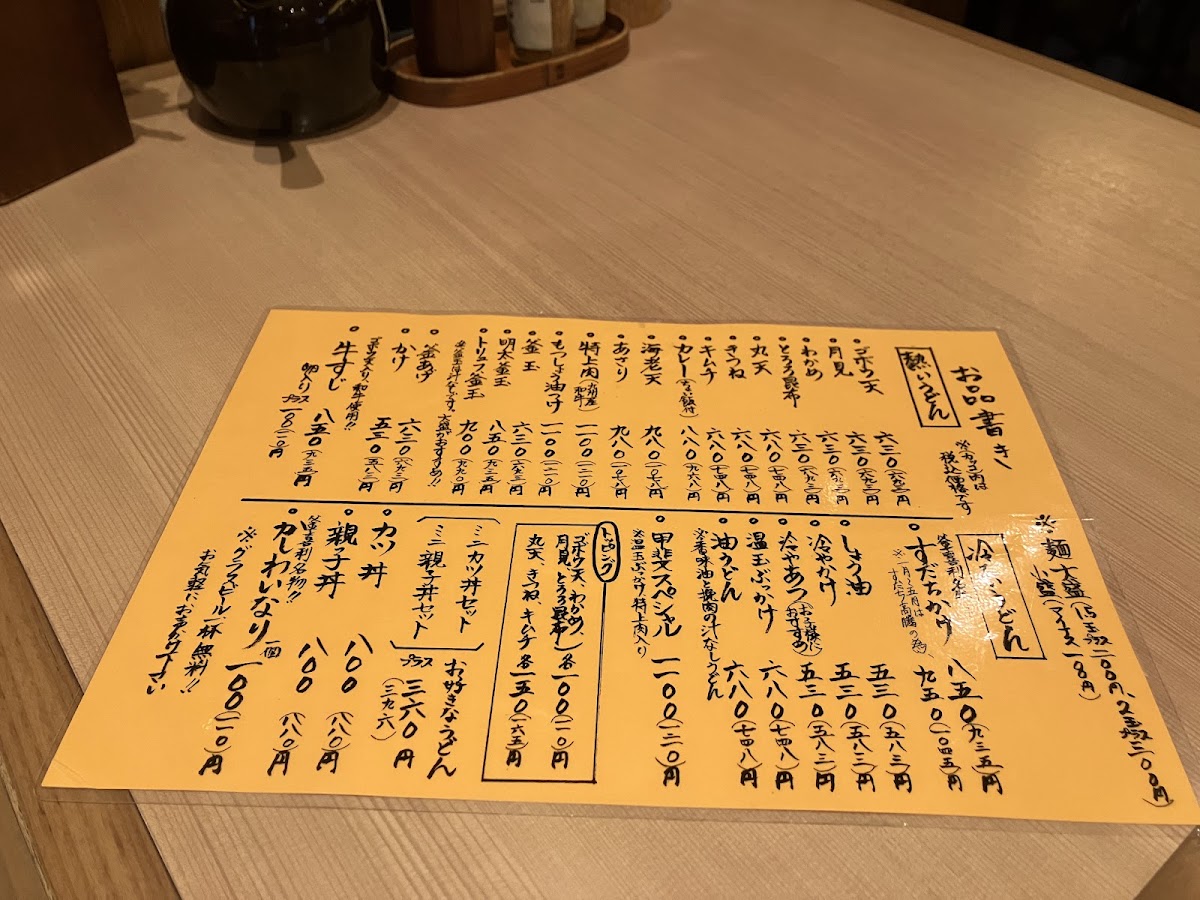 お品書き
※カッコ内は
税込価格です
熱いうどん
ゴボウ天 六三〇(六九三)円
月見 六三〇(六九三)円
わかめ 六三〇(六九三)円
とろろ昆布 六三〇(六九三)円
丸天 六八〇(七四八)円
きつね 六八〇(七四八)円
キムチ 六八〇(七四八)円
カレー(ちょい飯付) 八八〇(九六八)円
海老天 九八〇(一〇七八)円
あさり 九八〇(一〇七八)円
特上肉(九州産和牛) 一一〇〇(一二一〇)円
もつしょう油つけ 一一〇〇(一二一〇)円
釜玉 六三〇(六九三)円
明太釜玉 八五〇(九三五)円
トリュフ釜玉 九〇〇(九九〇)円
※釜玉は汁なしです。大盛がおすすめ!!
釜あげ 六三〇(六九三)円
かけ 五三〇(五八三)円
ゴボウ天入り 和牛使用!!
牛すじ 八五〇(九三五)円
卵入りプラス一〇〇(一一〇)円
※麺大盛(1.5玉プラス一〇〇円、2玉プラス二〇〇円)
小盛(マイナス一〇円)
冷たいうどん
釜喜利名物
すだちかけ 八五〇(九三五)円
※一月〜五月は
すだち高騰の為
九五〇(一〇四五)円
しょう油 五三〇(五八三)円
冷やかけ 五三〇(五八三)円
冷やあつ(お子様におすすめ) 五三〇(五八三)円
温玉ぶっかけ 六八〇(七四八)円
油うどん 六八〇(七四八)円
※香味油と挽肉の汁なしうどん
甲斐スペシャル 一一〇〇(一二一〇)円
※温玉ぶっかけ特上肉入り
トッピング
ゴボウ天、わかめ、
月見、とろろ昆布 各一〇〇(一一〇)円
丸天、きつね、キムチ 各一五〇(一六五)円
ミニカツ丼セット
ミニ親子丼セット
お好きなうどん
プラス三六〇円
(三九六)
カツ丼 八〇〇(八八〇)円
親子丼 八〇〇(八八〇)円
釜喜利名物!!
かしわいなり 一個 一〇〇(一一〇)円
※グラスビール一杯無料!!
お気軽にお声かけ下さい